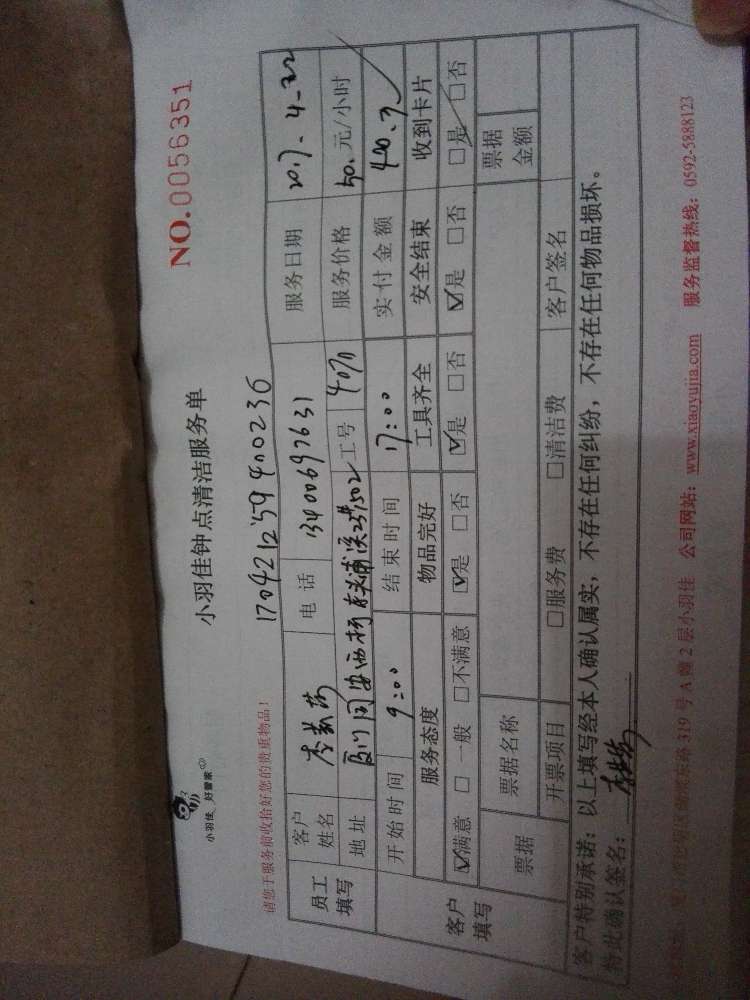 小羽佳 好管家
小羽佳钟点清洁服务单
NO.0056351
请您于服务前收拾好您的贵重物品!
员工填写
客户姓名
电话
服务日期 2017-4-22
地址
工号
服务价格 50. 元/小时
开始时间 9:00 结束时间 17:00 实付金额
客户填写
服务态度 物品完好 工具齐全 安全结束 收到卡片
☑满意 □一般 □不满意 ☑是 □否 ☑是 □否 ☑是 □否 ☑是 □否
票据 票据名称 票据金额
开票项目 □服务费 □清洁费 客户签名
客户特别承诺:以上填写经本人确认属实,不存在任何纠纷,不存在任何物品损坏。
特此确认签名:
319号A幢2层小羽佳 公司网站:www.xiaoyujia.com 服务监督热线:0592-5888123